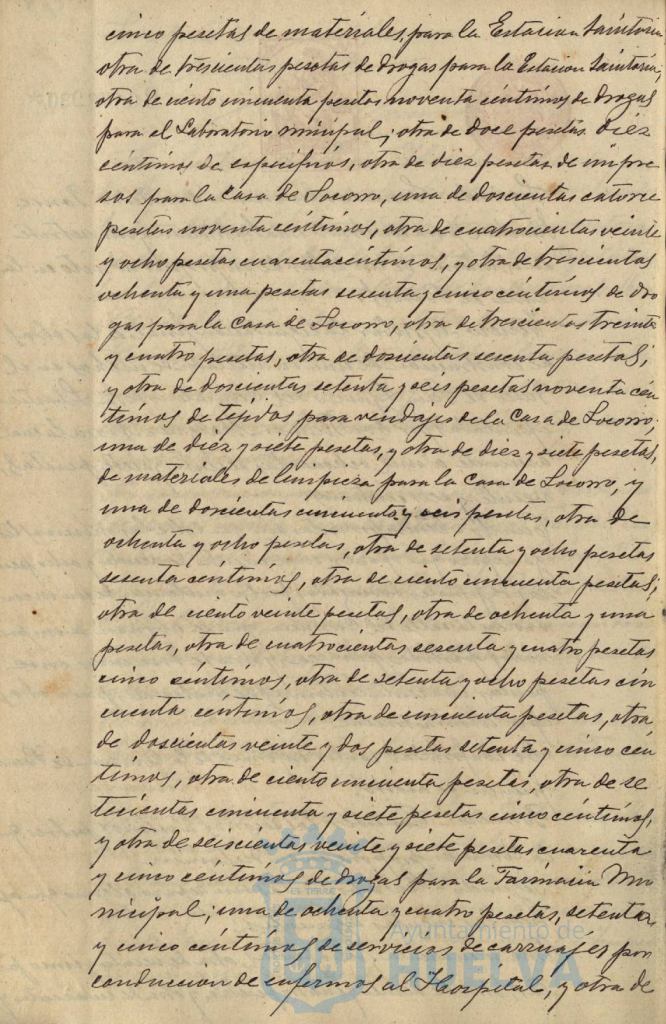 cinco pesetas de materiales para la Estacion Sanitaria
otra de trescientas pesetas de drogas para la Estacion Sanitaria,
otra de ciento cincuenta pesetas noventa céntimos de drogas
para el Laboratorio municipal; otra de doce pesetas diez
céntimos de específicos, otra de diez pesetas de impre
sos para la Casa de Socorro, una de doscientas catorce
pesetas noventa céntimos, otra de cuatrocientas veinte
y ocho pesetas cuarenta céntimos, y otra de trescientas
ochenta y una pesetas sesenta y cinco céntimos de dro
gas para la Casa de Socorro, otra de trescientas treinta
y cuatro pesetas, otra de doscientas sesenta pesetas;
y otra de doscientas setenta y seis pesetas noventa cén
timos de tejidos para vendajes de la Casa de Socorro;
una de diez y siete pesetas, y otra de diez y siete pesetas,
de materiales de limpieza para la Casa de Socorro, y
una de doscientas cincuenta y seis pesetas, otra de
ochenta y ocho pesetas, otra de setenta y ocho pesetas
sesenta céntimos, otra de ciento cincuenta pesetas;
otra de ciento veinte pesetas, otra de ochenta y una
pesetas, otra de cuatrocientas sesenta y cuatro pesetas
cinco céntimos, otra de setenta y ocho pesetas cin
cuenta céntimos, otra de cincuenta pesetas, otra
de doscientas veinte y dos pesetas setenta y cinco cén
timos, otra de ciento cincuenta pesetas, otra de se
tecientas cincuenta y siete pesetas cinco céntimos,
y otra de seiscientas veinte y siete pesetas cuarenta
y cinco céntimos de drogas para la Farmacia Mu
nicipal; una de ochenta y cuatro pesetas, setenta
y cinco céntimos de servicios de carruajes por
conduccion de enfermos al Hospital, y otra de
Ayuntamiento de
HUELVA